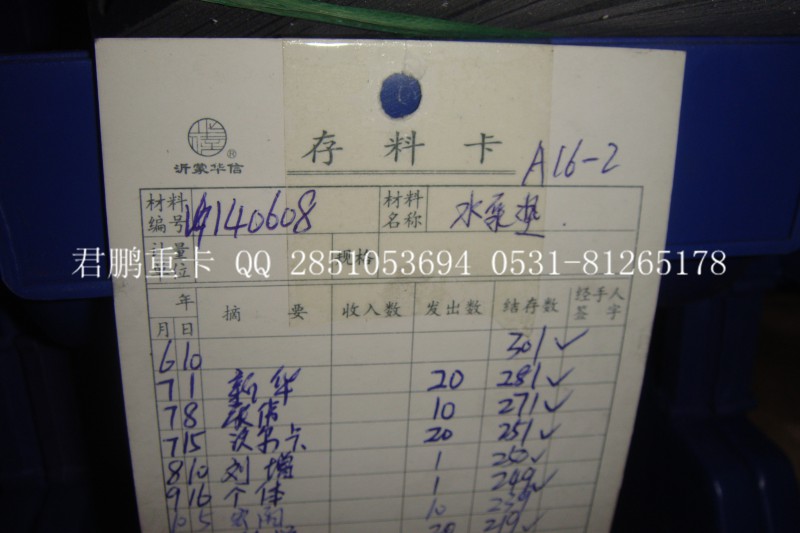 存料卡
A16-2
沂蒙华信®
材料编号 140608 材料名称 水泵垫
计量单位 规格
君鹏重卡 QQ 2851053694 0531-81265178
年 月 日 摘要 收入数 发出数 结存数 经手人签字
6 10 301 ✓
7 1 新华 20 281 ✓
7 8 10 271 ✓
7 15 沃尔卡 20 251 ✓
8 10 刘增 1 250 ✓
9 16 个体 1 249 ✓
10 5 10 239
20 219 ✓